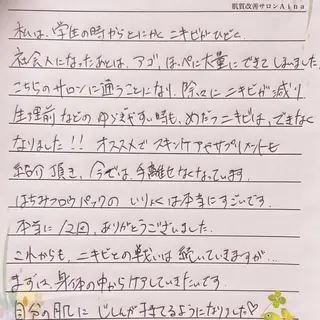 肌質改善サロンAina
私は、学生の時からとにかくニキビがひどく
社会人になったあとは、アゴ、ほっぺに大量にできてしまいました
こちらのサロンに通うことになり、除々にニキビが減り
生理前などのゆらぎやすい時も、めだつニキビは、できなく
なりました!! オススメでスキンケアやサプリメントも
紹介頂き、今では、手離せなくなっています。
はちみつフロウパックのいりょくは本当にすごいです。
本当に12回、ありがとうございました。
これからも、ニキビとの戦いは続いていきますが…
まずは、身体の中からケアしていきたいです。
自分の肌にじしんが持てるようになりました♡